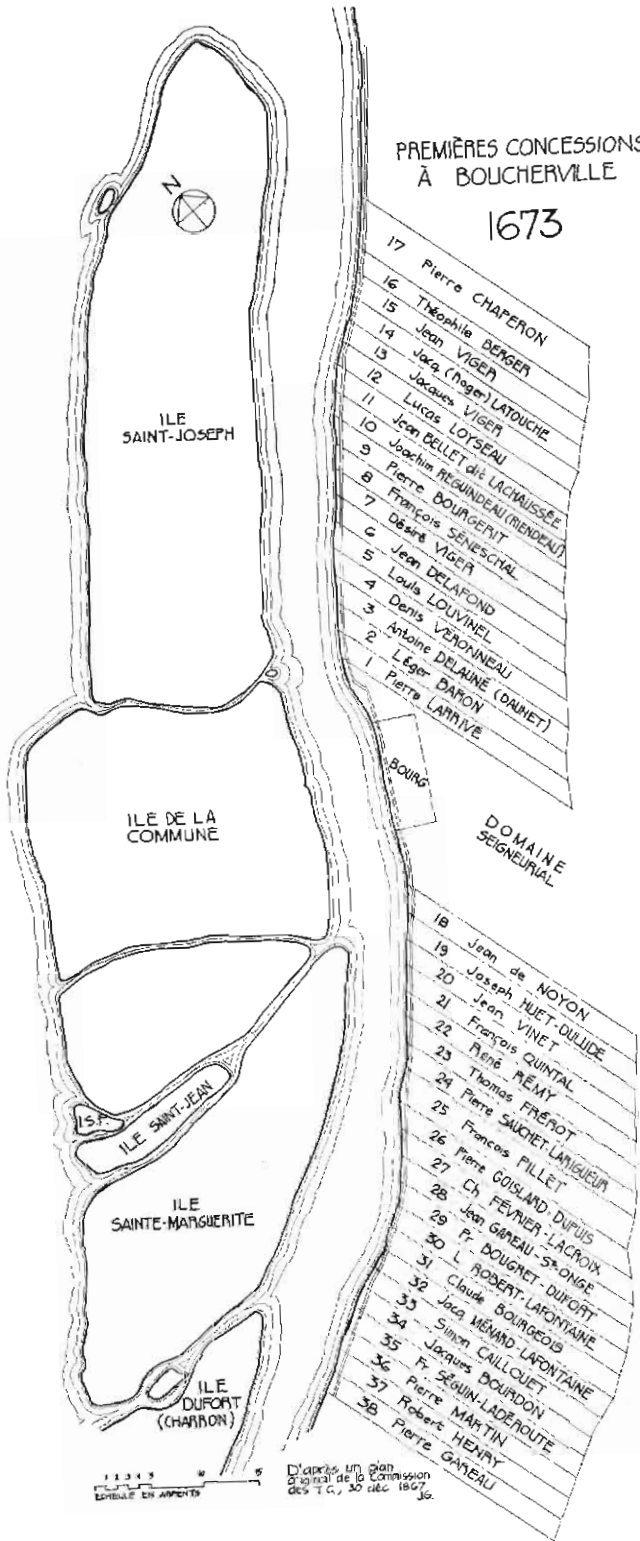 PREMIÈRES CONCESSIONS
À BOUCHERVILLE
1673
N
17 Pierre CHAPERON
16 Théophile BERGER
15 Jean VIGER
14 Jacq (Roger) LATOUCHE
13 Jacques VIGER
12 Lucas LOYSEAU
11 Jean BELLET dit LACHAUSSÉE
10 Joachim REGUINDEAU (RIENDEAU)
9 Pierre BOURGERIT
8 François SÉNESCHAL
7 Désiré VIGER
6 Jean DELAFOND
5 Louis LOUVINEL
4 Denis VÉRONNEAU
3 Antoine DELAUNÉ (DAUNET)
2 Léger BARON
1 Pierre LARRIVÉ
ILE
SAINT-JOSEPH
BOURG
ILE DE LA
COMMUNE
DOMAINE
SEIGNEURIAL
18 Jean de NOYON
19 Joseph HUET-DULUDE
20 Jean VINET
21 François QUINTAL
22 René RÉMY
23 Thomas FRÉROT
24 Pierre SAUCHET-LARIGUEUR
25 François PILLET
26 Pierre GOISLARD-DUPUIS
27 Ch. FÉVRIER-LACROIX
28 Jean GAREAU-St-ONGE
29 Pr. BOUGRET-DUFORT
30 L. ROBERT-LAFONTAINE
31 Claude BOURGEOIS
32 Jacq. MÉNARD-LAFONTAINE
33 Simon CAILLOUET
34 Jacques BOURDON
35 Fr. SÉGUIN-LADÉROUTE
36 Pierre MARTIN
37 Robert HENRY
38 Pierre GAREAU
I.S.P.
ILE SAINT-JEAN
ILE
SAINTE-MARGUERITE
ILE
DUFORT
(CHARRON)
1 2 3 4 5 10 15
ECHELLE EN ARPENTS
D'après un plan
original de la Commission
des T.G., 30 déc 1867
JG.